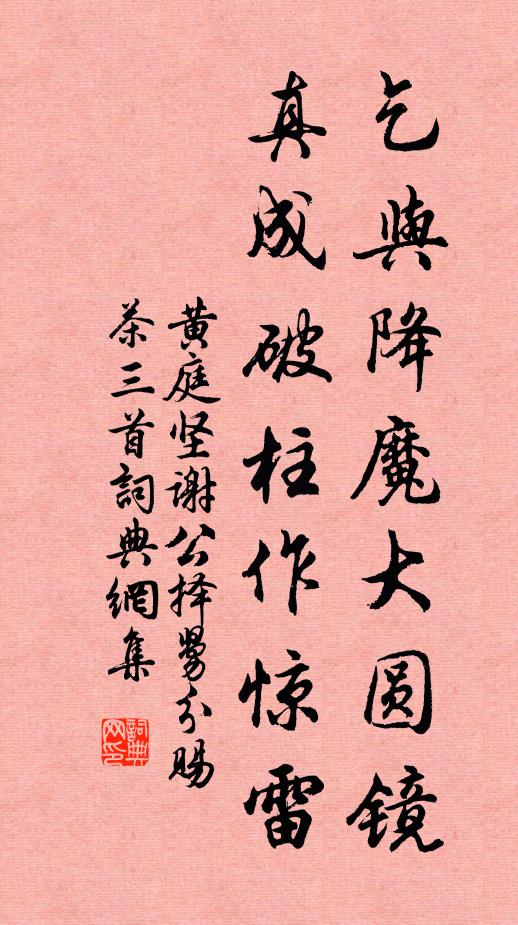 乞與降魔大圆镜
真成破柱作惊雷
黄庭坚谢公择舅分赐
茶三首詞典網集
詞典网印